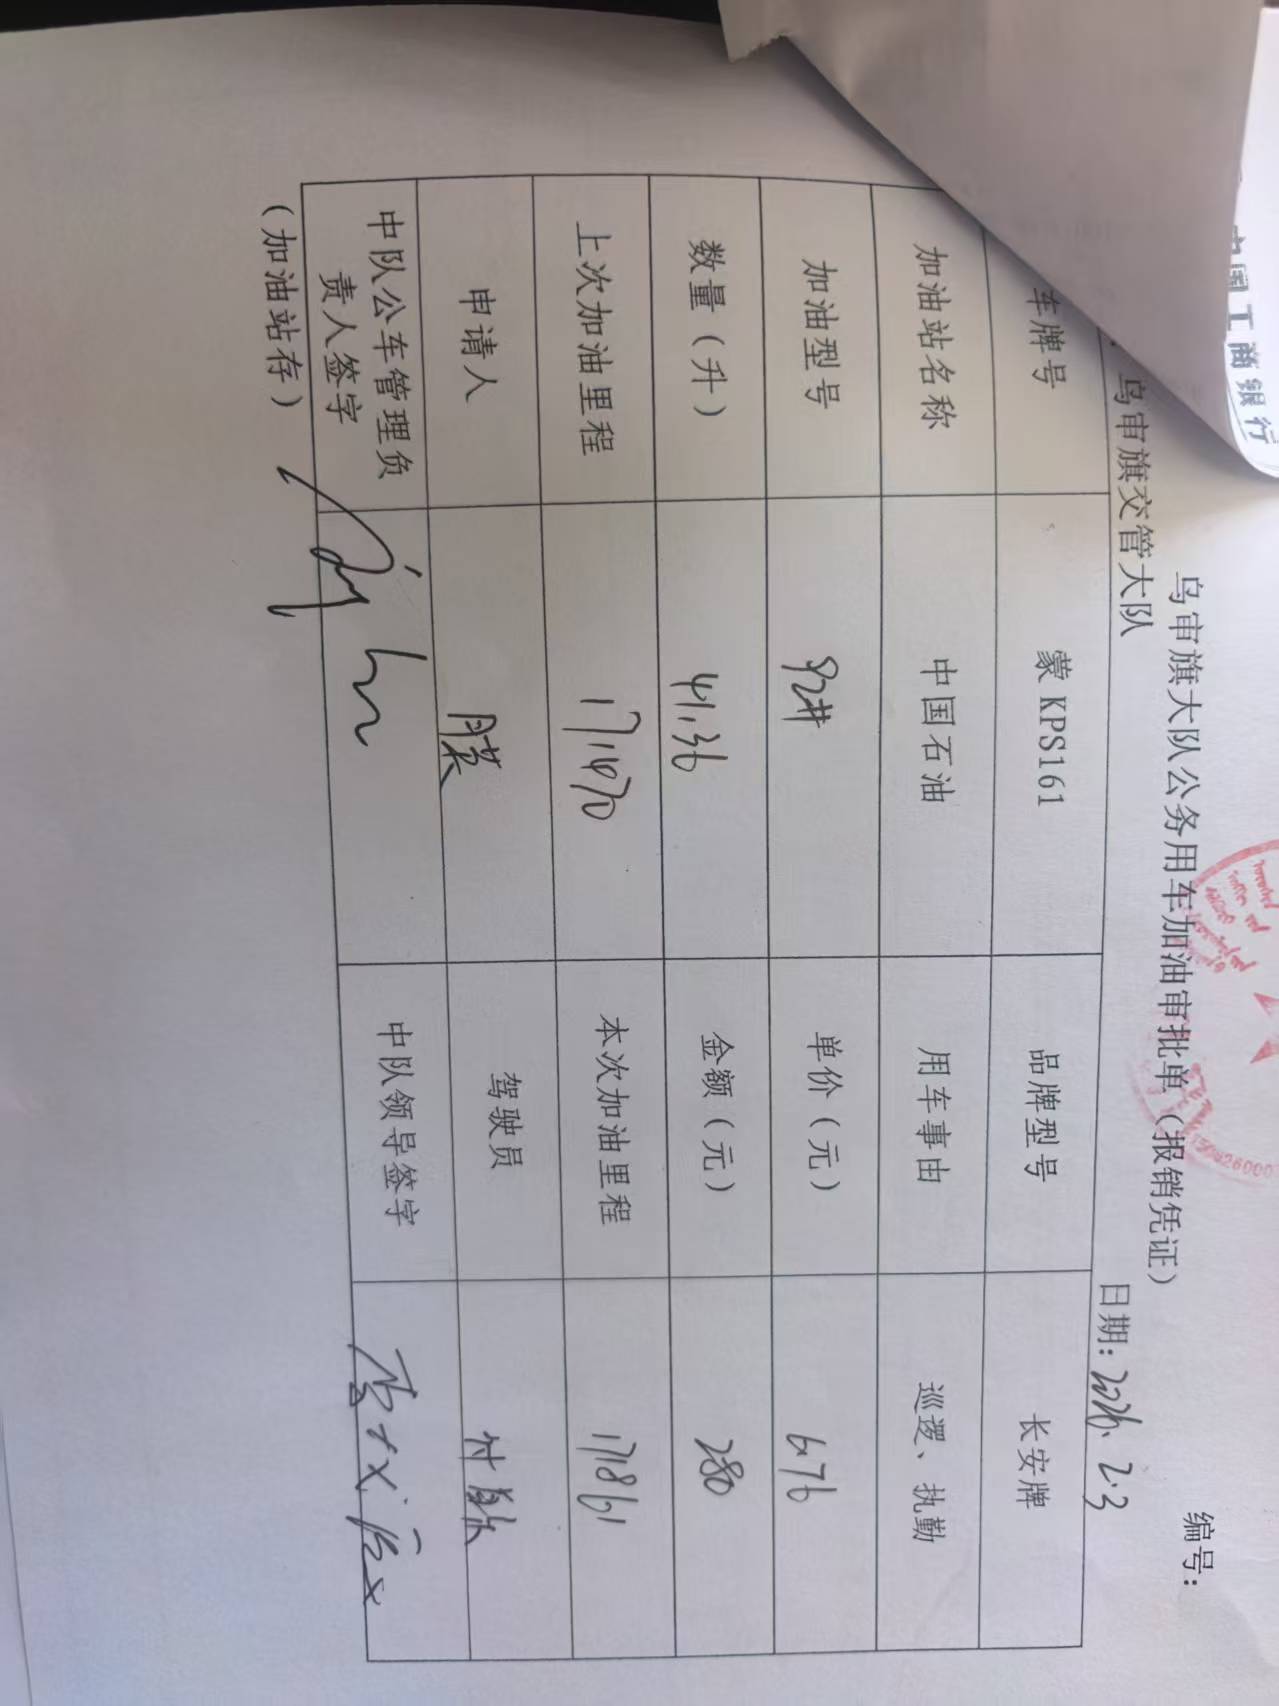 中国工商银行
乌审旗大队公务用车加油审批单（报销凭证）
编号：
乌审旗交管大队 日期：2026.2.3
车牌号 蒙KPS161 品牌型号 长安牌
加油站名称 中国石油 用车事由 巡逻、执勤
加油型号 92# 单价（元） 6.76
数量（升） 41.36 金额（元） 280
上次加油里程 171470 本次加油里程 171861
申请人 驾驶员
中队公车管理负责人签字 中队领导签字
（加油站存）